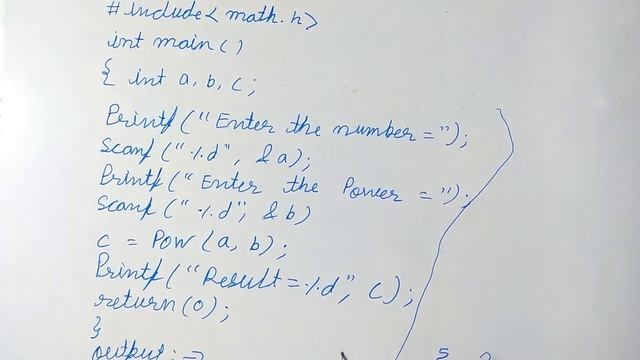 #include<math.h>
int main()
{ int a, b, c;
Printf("Enter the number =");
Scanf("%d", &a);
Printf("Enter the Power =");
Scanf("%d", &b)
c = POW (a, b);
Printf("Result=%d", c);
return(0);
}
output :→
5